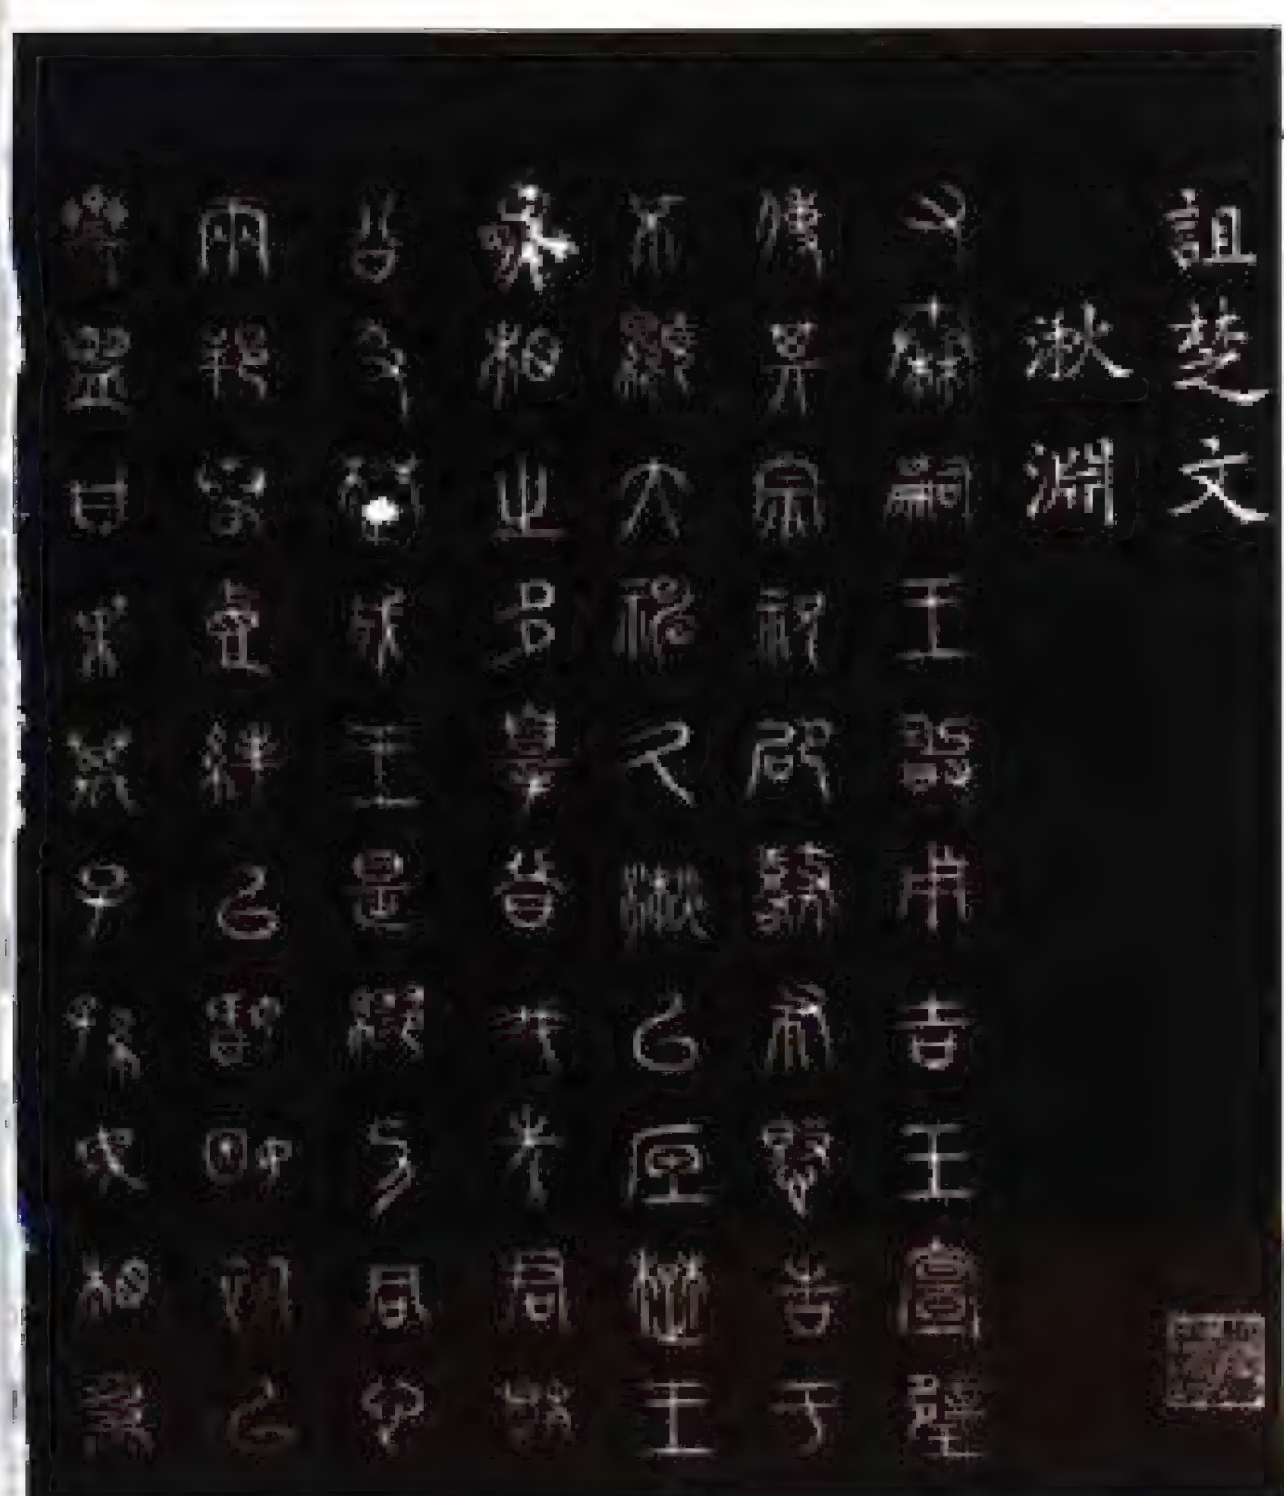 詛楚文
湫淵
又秦嗣王敢用吉玉宣璧
使其宗祝邵鼛布愍告于
不顯大神久湫以底楚王
熊相之多辠昔我先君穆
公及楚成王是繆力同心
兩邦若壹絆以婚姻袗以
齋盟曰枼萬子孫毋相為